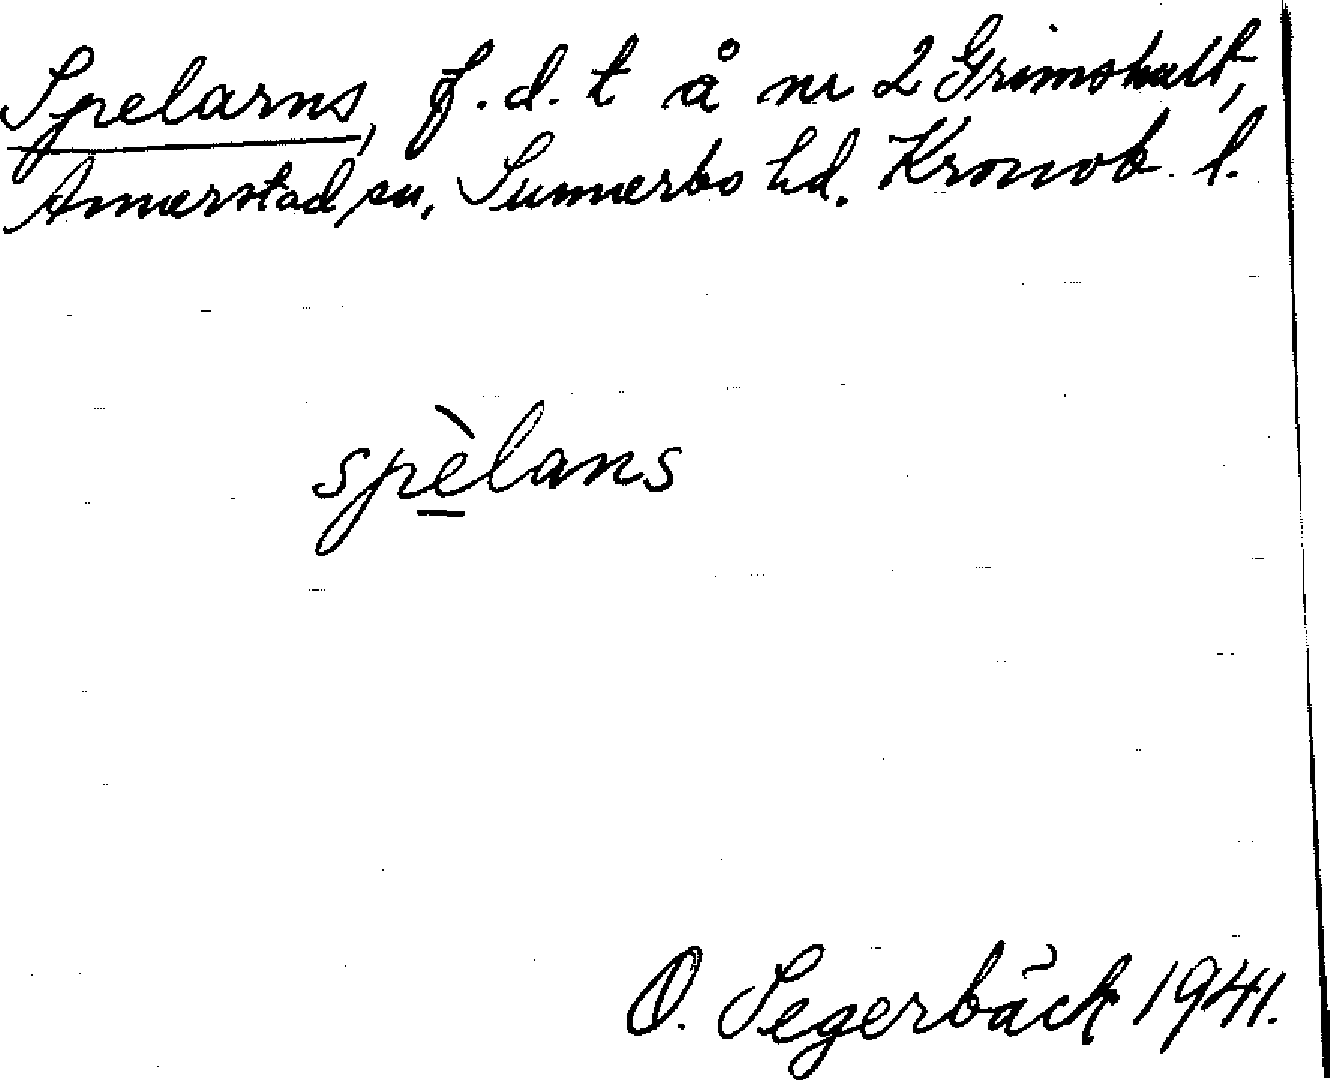 Spelarns, f.d. t å nr 2 Grimshult,
Annerstad sn, Sunnerbo hd. Kronob. l.
spèlans
O. Segerbäck 1941.